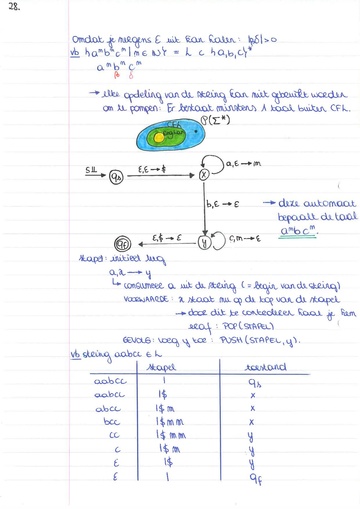 28.
Omdat je nergens ε uit kan halen: |pδ|>0
vb {aᵐbᵐcᵐ | m ∈ ℕ} = L ⊂ {a,b,c}*
aᵐbᵐcᵐ
→ elke opdeling van de string kan niet gebruikt worden
om te pompen: Er bestaat minstens 1 taal buiten CFL.
P(Σ*)
CFL
Regular
a,ε → m
ε,ε → $
qs
x
b,ε → ε
→ deze automaat
bepaalt de taal
aᵐbcᵐ.
ε,$ → ε
c,m → ε
qf
y
stapel: initieel leeg
a,x → y
↳ consumeer a uit de string (= begin van de string)
VOORWAARDE: x staat nu op de top van de stapel
→ door dit te controleren haal je hem
eraf: POP(STAPEL)
GEVOLG: voeg y toe: PUSH(STAPEL, y).
vb string aabcc ∈ L
stapel toestand
aabcc | qs
aabcc |$ x
abcc |$m x
bcc |$mm x
cc |$mm y
c |$m y
ε |$ y
ε | qf